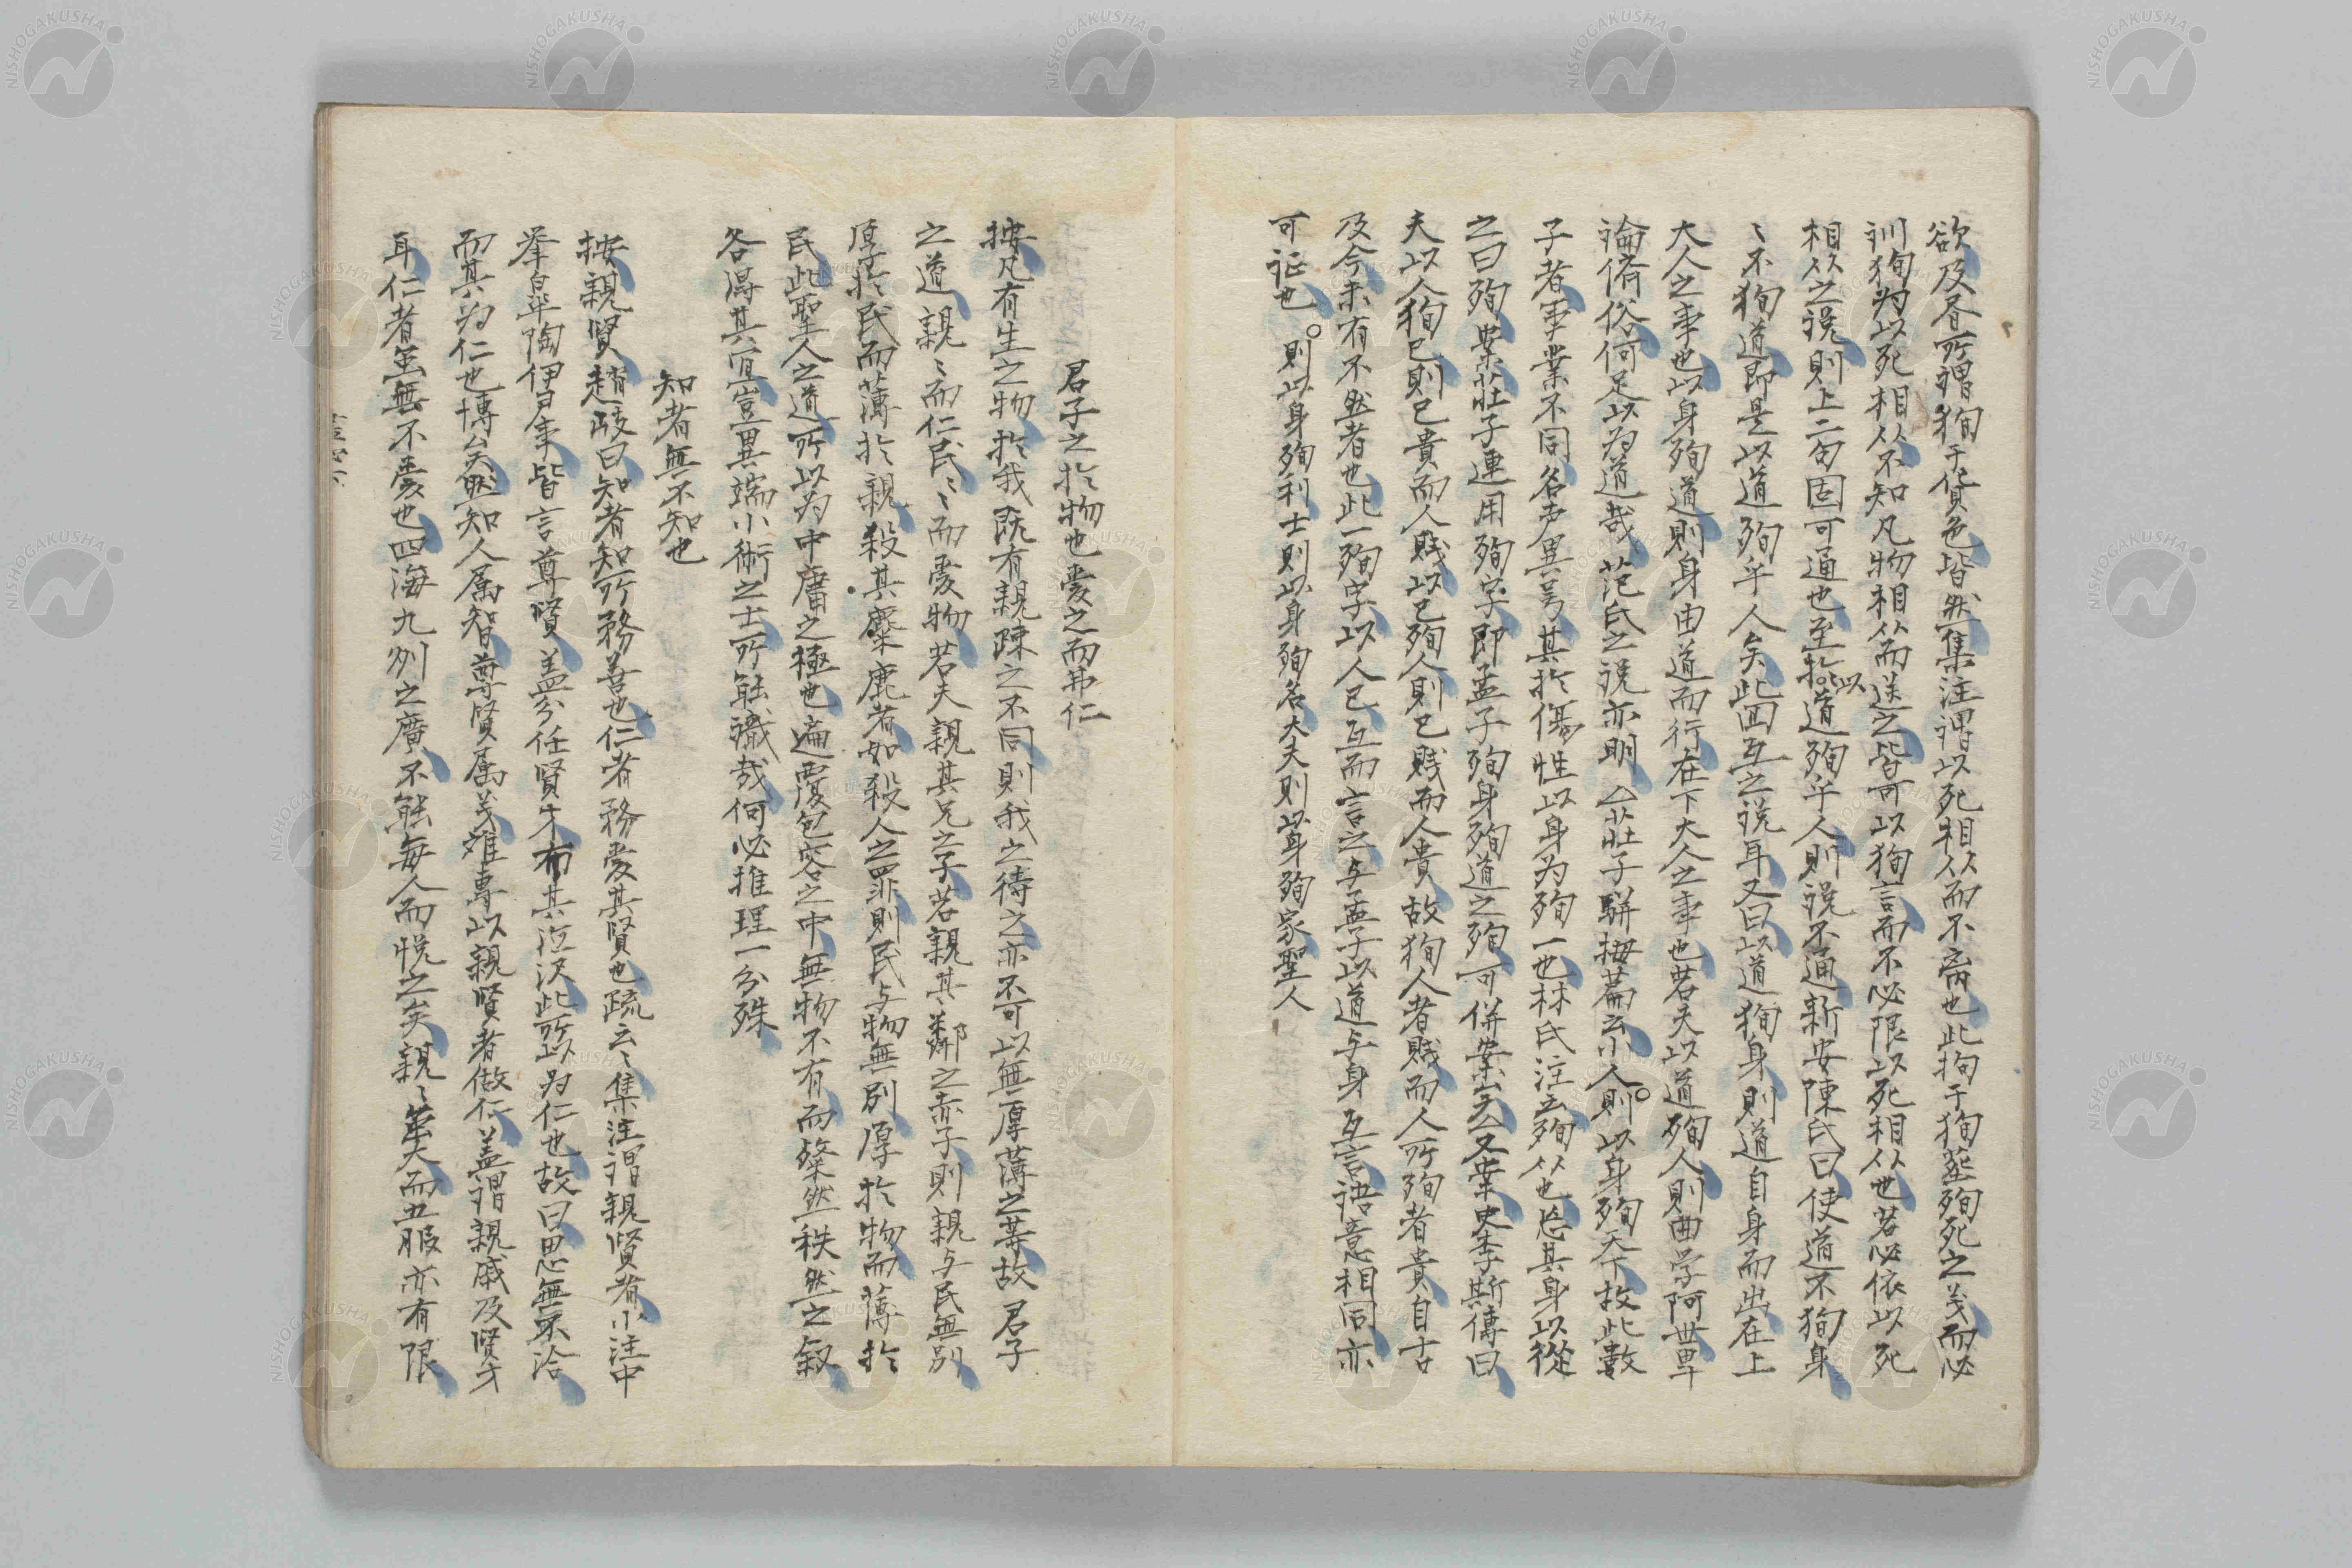 欲及吝所謂狥于貨色皆然集注謂以死相从而不离也此拘于狥葬殉死之義而必
訓狥为以死相从不知凡物相从而送之皆可以狥言而不必限以死相从也若必依以死
相从之説則上二句固可通也至於以道殉乎人則説不通新安陳氏曰使道不狥身
〻不狥道即是以道殉乎人矣此囬互之説耳又曰以道狥身則道自身而出在上
大人之事也以身殉道則身由道而行在下大人之事也若夫以道殉人則曲学阿世卑
論儕俗何足以为道哉范氏之説亦明△荘子駢拇萹云小人則以身殉天下故此數
子者事業不同名声異号其於傷性以身为殉一也林氏注云殉从也忘其身以從
之曰殉案荘子連用殉字即孟子殉身殉道之殉可併案矣又案史李斯傳曰
夫以人狥已則已貴而人賎以已殉人則已賎而人貴故狥人者賎而人所殉者貴自古
及今未有不然者也此一殉字以人已互而言之与孟子以道与身互言語意相同亦
可証也○則以身殉利士則以身殉名大夫則以身殉家聖人
君子之於物也愛之而弗仁
按凡有生之物於我既有親踈之不同則我之待之亦不可以無厚薄之等故君子
之道親〻而仁民〻而愛物若夫親其兄之子若親其鄰之赤子則親与民無別
厚於民而薄於親殺其麋鹿者如殺人之罪則民与物無別厚於物而薄於
民此聖人之道所以为中庸之極也遍覆包容之中無物不有而粲然秩然之叙
各得其宜豈異端小術之士所能識哉何必推理一分殊
知者無不知也
按親賢趙岐曰知者知所務善也仁者務愛其賢也疏云〻集注謂親賢者小注中
挙皐陶伊尹事皆言尊賢盖分任賢才布其流沢此所以为仁也故曰恩無不洽
而其为仁也博矣然知人属智尊賢属義难専以親賢者做仁盖謂親戚及賢才
耳仁者虽無不愛也四海九州之廣不能毎人而悦之矣親〻虽大而五服亦有限